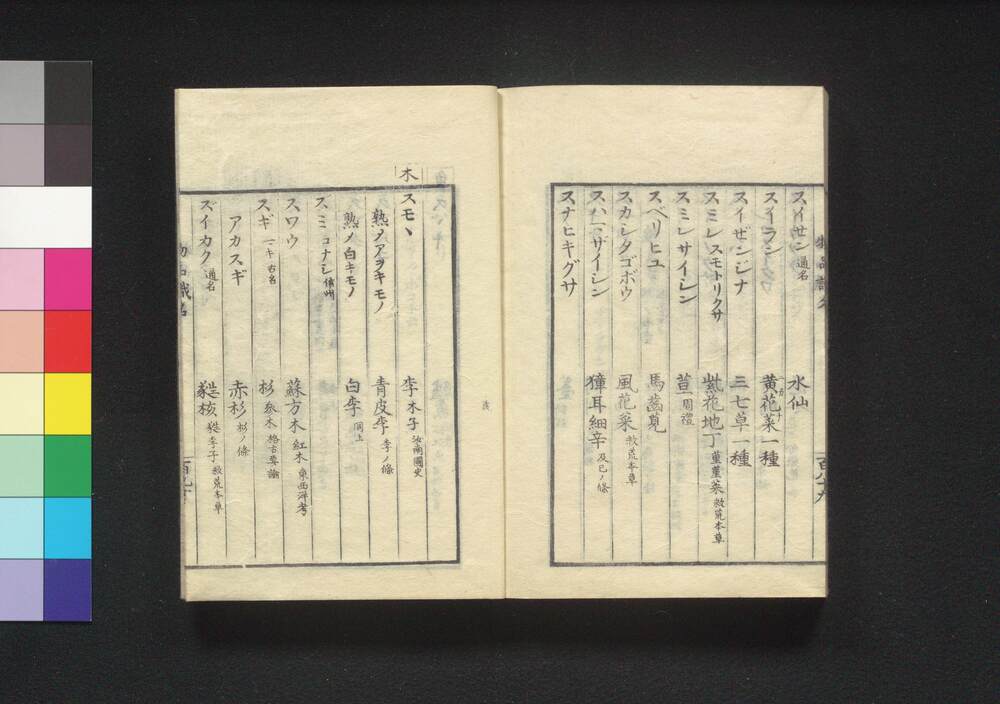 スイセン 通名 水仙
スイラン 黄花菜一種
スイゼンジナ 三七草一種
スミレ スモトリクサ 紫花地丁 菫菫菜 救荒本草
スミレサイシン 苣 一 周禮
スベリヒユ 馬齒莧
スカシタゴボウ 風花菜 救荒本草
スハマサイシン 獐耳細辛 及已ノ條
スナヒキグサ
木
スモヽ 李 木子 汝南圃史
熟メアヲキモノ 青皮李 李ノ條
熟メ白キモノ 白李 同上
スミ コナシ 信州
スワウ 蘇方木 紅木 東西洋考
スギ マキ 古名 杉 沙木 格古要論
アカスギ 赤杉 杉ノ條
ズイカク 通名 蕤核 蕤李子 救荒本草
物品識名